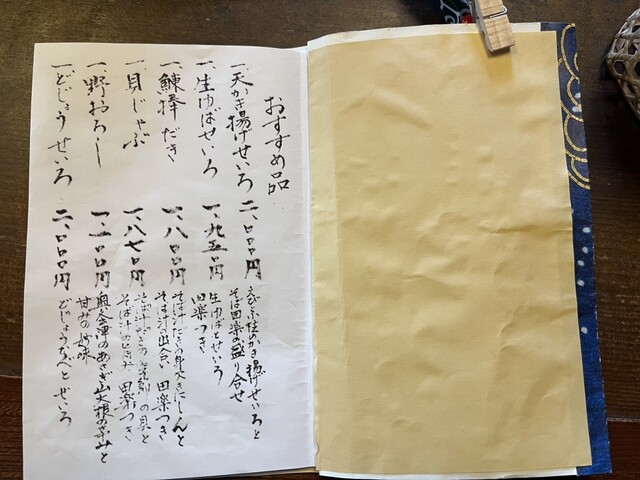 おすすめ品
一、天かき揚げせいろ 二、〇〇〇円
えびと
かき揚げせいろと
そば田楽の盛り合せ
一、生ゆばせいろ 一、九五〇円
生ゆばとせいろ
田楽つき
一、鰊棒だき 一、八〇〇円
身欠きにしんと
そば汁の出会い 田楽つき
一、貝じゃぶ 一、八七〇円
の貝と
そば汁の 田楽つき
一、野おろし 一、一〇〇円
奥会津のあざき大根の辛みと
甘さの妙味
一、どじょうせいろ 二、〇〇〇円
どじょうなべとせいろ